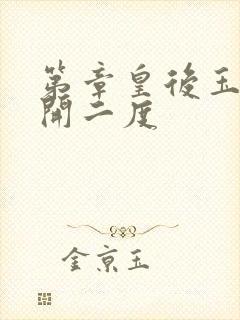 第章皇後玉
開二度
金京玉